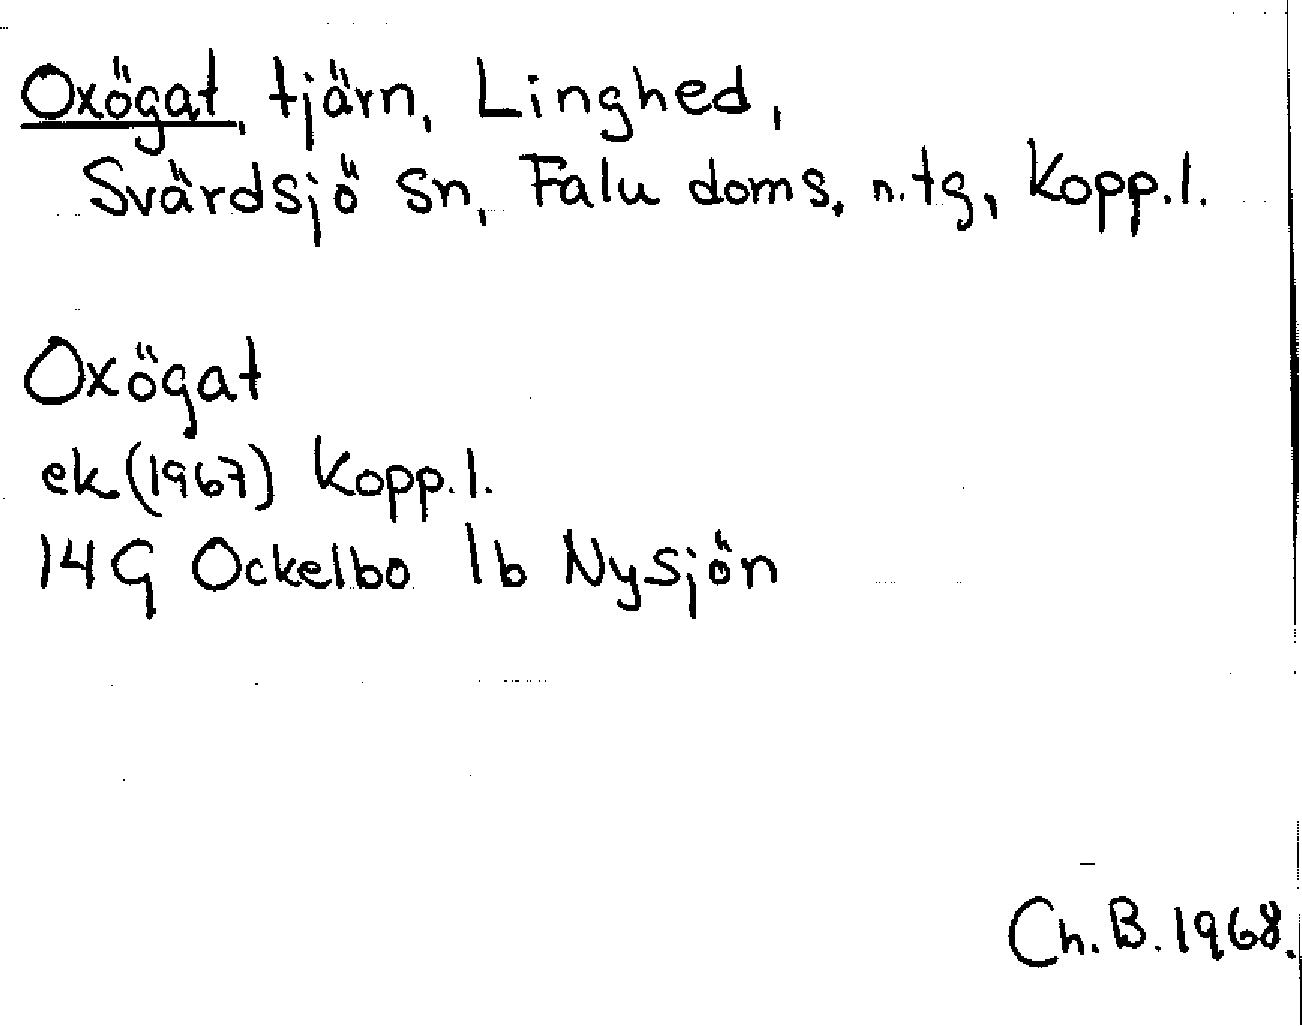 Oxögat, tjärn, Linghed,
Svärdsjö sn, Falu doms. n. tg, Kopp. l.
Oxögat
ek (1967) Kopp. l.
14 G Ockelbo 1b Nysjön
Ch. B. 1968.